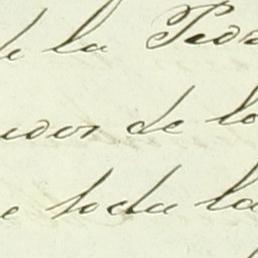 de la Peda
ador de lo
e toda la